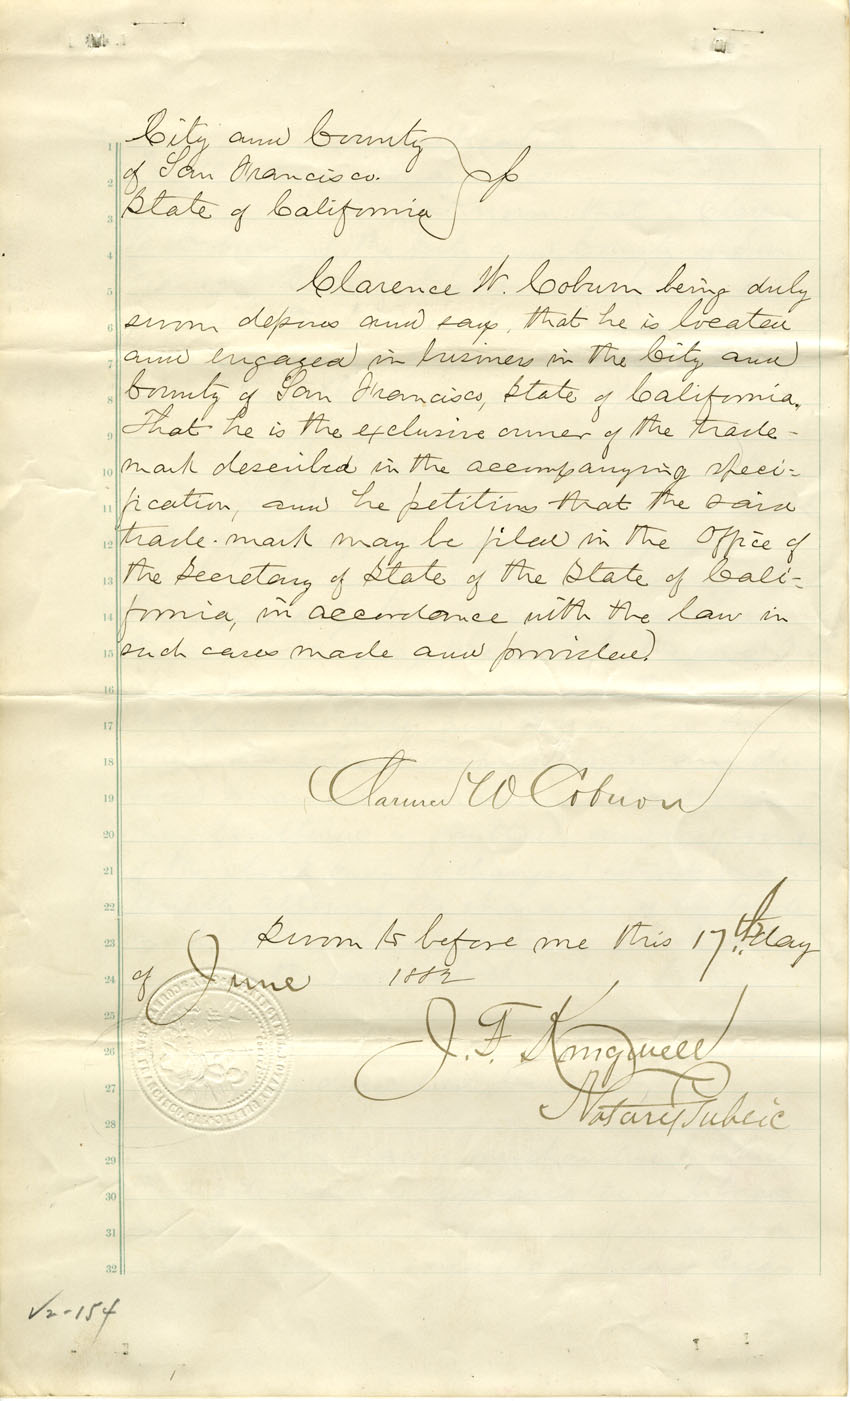 City and County
of San Francisco.
State of California } ss
Clarence W. Coburn being duly
sworn deposes and says, that he is located
and engaged in business in the City and
County of San Francisco, State of California.
That he is the exclusive owner of the trade-
mark described in the accompanying speci-
fication, and he petitions that the said
trade-mark may be filed in the Office of
the Secretary of State of the State of Cali-
fornia, in accordance with the law in
such cases made and provided.
Clarence W Coburn
Sworn to before me this 17th day
of June 1882
J. F. Kingwell
Notary Public
V2-154
1
2
3
4
5
6
7
8
9
10
11
12
13
14
15
16
17
18
19
20
21
22
23
24
25
26
27
28
29
30
31
32